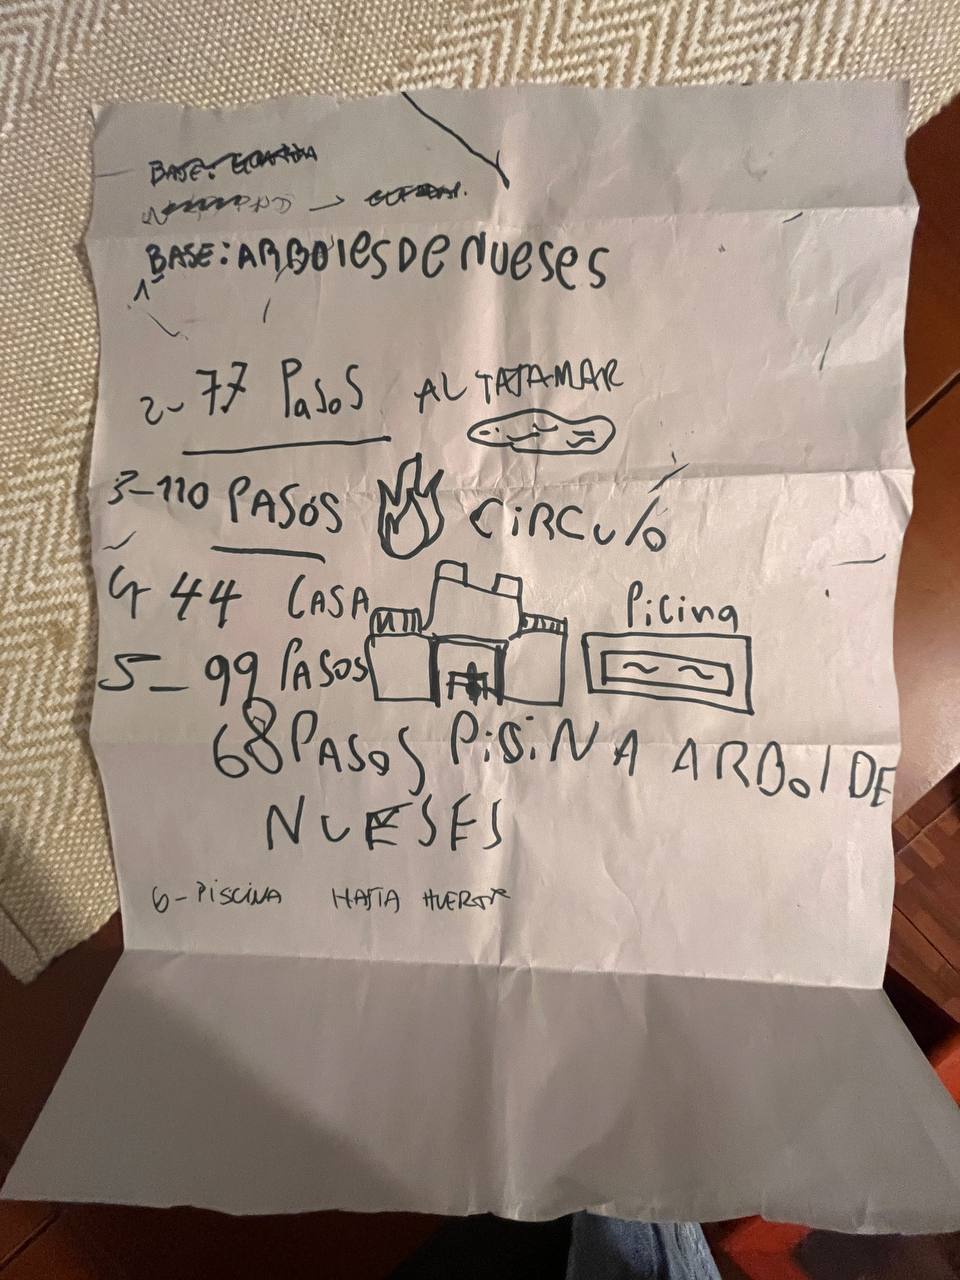 BASE:
BASE: ARBOlES DE NUESES
1-
2- 77 PasoS AL TAJAMAR
3-110 PASOS CIRCUlo
4 44 CASA
Picina
5_ 99 PASOS
68 PASOS PISINA ARBOl DE
NUESES
6- PISCINA HASTA HUERTA